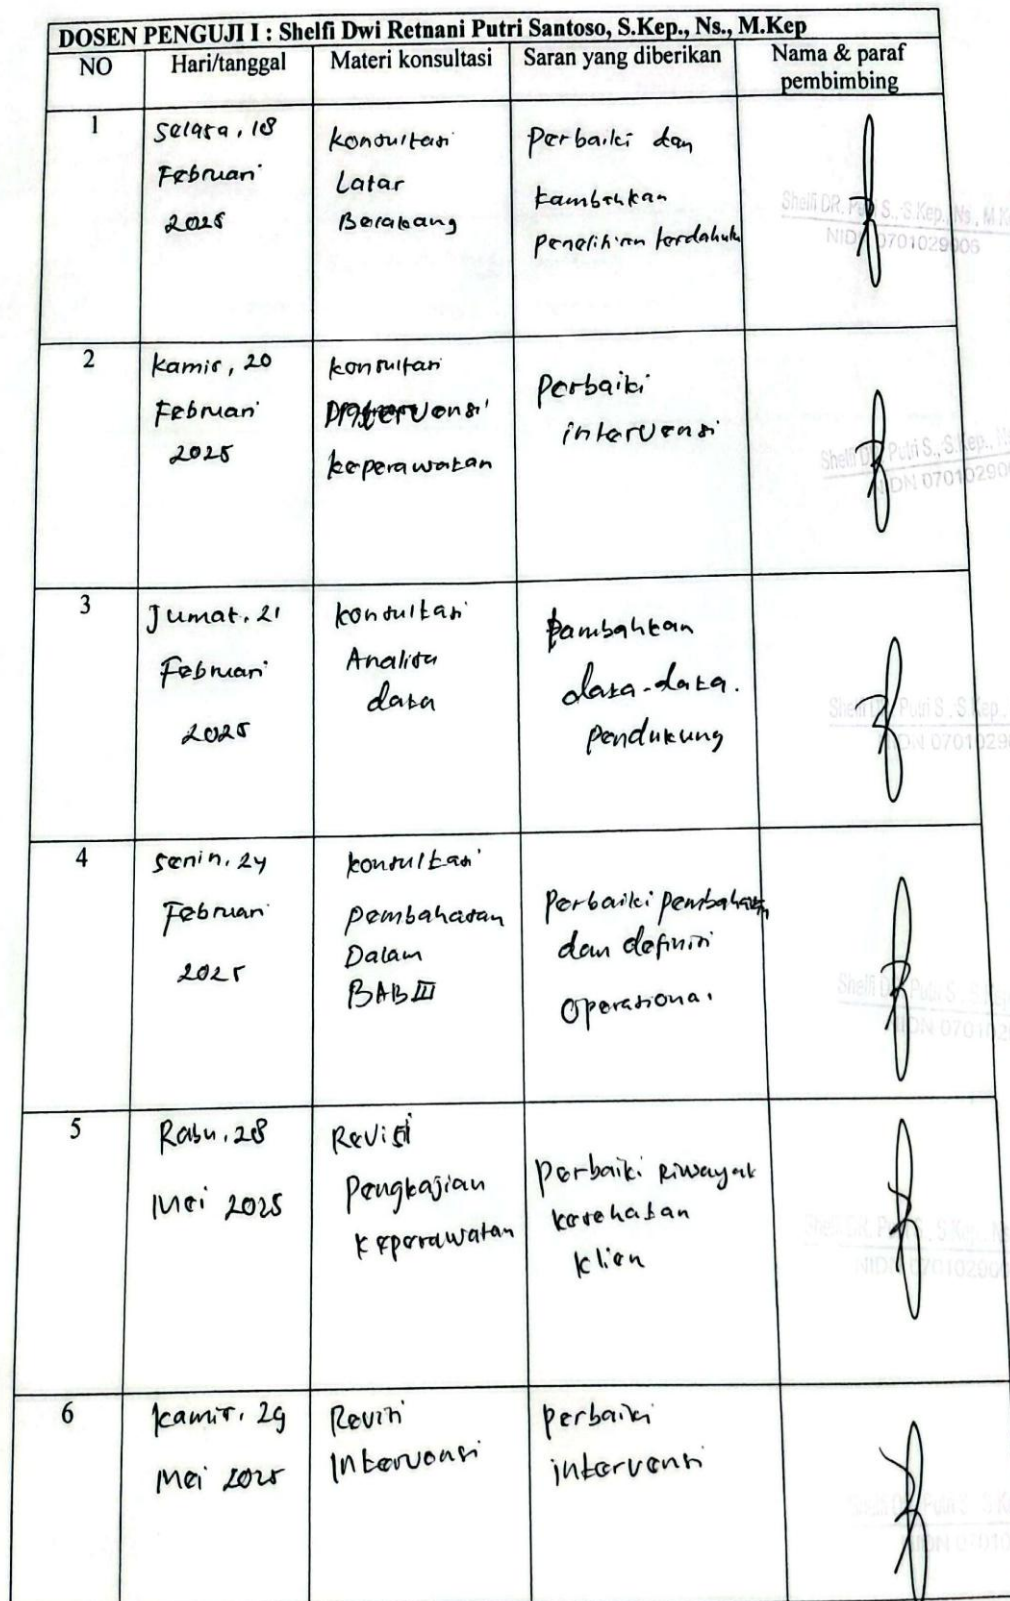 DOSEN PENGUJI I : Shelfi Dwi Retnani Putri Santoso, S.Kep., Ns., M.Kep
NO Hari/tanggal Materi konsultasi Saran yang diberikan Nama & paraf
pembimbing
1
Selasa, 18
Februari
2025
konsultasi
Latar
Belakang
Perbaiki dan
tambahkan
penelitian terdahulu
Shelfi DR. Putri S., S.Kep., Ns., M.Kep
NIDN 0701029006
2
Kamis, 20
Februari
2025
konsultasi
Intervensi
keperawatan
Perbaiki
intervensi
Shelfi DR. Putri S., S.Kep., Ns
NIDN 07010290
3
Jumat, 21
Februari
2025
konsultasi
Analisa
data
tambahkan
data-data.
pendukung
Shelfi DR. Putri S., S.Kep.,
NIDN 0701029
4
Senin, 24
Februari
2025
konsultasi
pembahasan
Dalam
BAB III
Perbaiki pembahasan
dan definisi
Operasional
Shelfi DR. Putri S., S.Kep
NIDN 070102
5
Rabu, 28
Mei 2025
Revisi
Pengkajian
keperawatan
Perbaiki Riwayat
kesehatan
klien
Shelfi DR. Putri S., S.Kep., Ns
NIDN 070102900
6
Kamis, 29
Mei 2025
Revisi
Intervensi
perbaiki
intervensi
Shelfi DR. Putri S., S.Ke
NIDN 07010